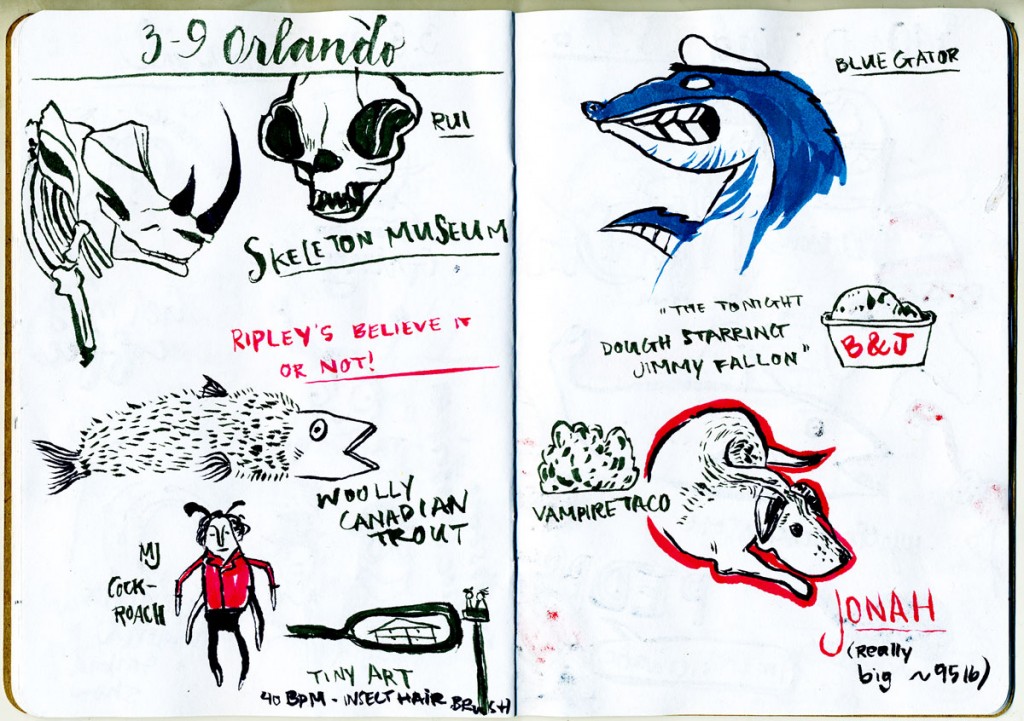 3-9 Orlando
RUI
SKELETON MUSEUM
RIPLEY'S BELIEVE IT
OR NOT!
WOOLLY
CANADIAN
TROUT
MJ
COCK-
ROACH
TINY ART
40 BPM - INSECT HAIR BRUSH
BLUE GATOR
"THE TONIGHT
DOUGH STARRING
JIMMY FALLON"
B&J
VAMPIRE TACO
JONAH
(really
big ~95lb)